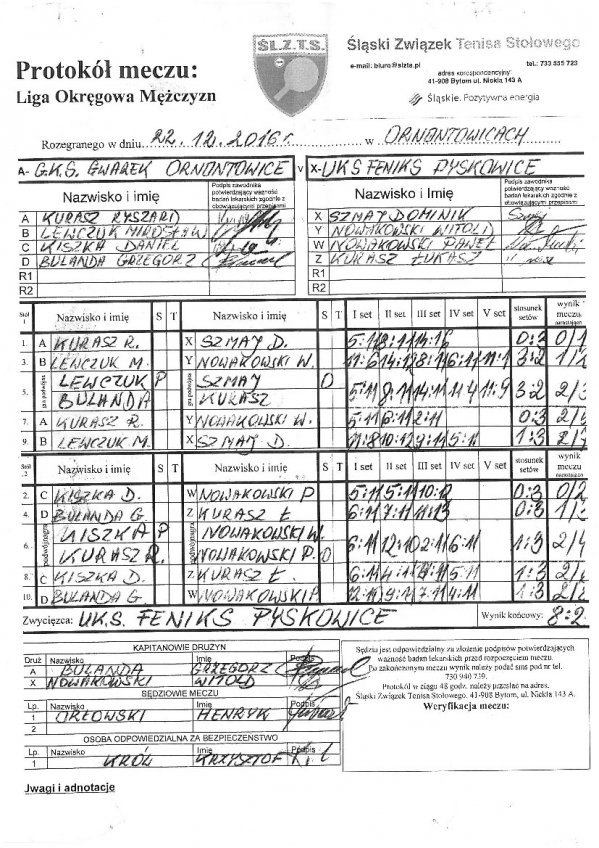 ŚL.Z.T.S.
Śląski Związek Tenisa Stołowego
e-mail: biuro@slzts.pl tel.: 733 555 723
adres korespondencyjny:
41-908 Bytom ul. Nickla 143 A
Śląskie. Pozytywna energia
Protokół meczu:
Liga Okręgowa Mężczyzn
Rozegranego w dniu 22.12.2016r. w ORNONTOWICACH
A- G.K.S. GWAREK ORNONTOWICE V X- UKS FENIKS PYSKOWICE
Nazwisko i imię Podpis zawodnika potwierdzający ważność badań lekarskich zgodnie z obowiązującymi przepisami Nazwisko i imię Podpis zawodnika potwierdzający ważność badań lekarskich zgodnie z obowiązującymi przepisami
A KURASZ RYSZARD X SZMAJ DOMINIK
B LEWCZUK MIROSŁAW Y NOWAKOWSKI WITOLD
C KISZKA DANIEL W NOWAKOWSKI PAWEŁ
D BULANDA GRZEGORZ Z KURASZ ŁUKASZ
R1 R1
R2 R2
Stół 1 Nazwisko i imię S T Nazwisko i imię S T I set II set III set IV set V set stosunek setów wynik meczu narastająco
1. A KURASZ R. X SZMAJ D. 5:11 8:11 14:16 0:3 0/1
3. B LEWCZUK M. Y NOWAKOWSKI W. 11:6 14:12 8:11 6:11 3:2 1/2
5. gra podwójna LEWCZUK P SZMAJ O
BULANDA KURASZ 5:11 9:11 14:11 11:4 11:9 3:2 2/3
7. A KURASZ R. Y NOWAKOWSKI W. 5:11 6:11 2:11 0:3
9. B LEWCZUK M. X SZMAJ D. 11:8 10:12 9:11 5:11 1:3
Stół 2 Nazwisko i imię S T Nazwisko i imię S T I set II set III set IV set V set stosunek setów wynik meczu narastająco
2. C KISZKA D. W NOWAKOWSKI P 5:11 5:11 10:12 0:3 0/2
4. D BULANDA G Z KURASZ Ł 6:11 7:11 11:13 0:3
6. podwójna gra KISZKA P NOWAKOWSKI W.
KURASZ R. NOWAKOWSKI P. O 6:11 12:10 2:11 6:11 1:3 2/4
8. C KISZKA D. Z KURASZ Ł 6:11 5:11 1:3
10. D BULANDA G W NOWAKOWSKI P 9:11 7:11 4:11 1:3
Zwycięzca: U.K.S. FENIKS PYSKOWICE Wynik końcowy: 8:2
KAPITANOWIE DRUŻYN
Druż Nazwisko Imię Podpis
A BULANDA GRZEGORZ
X NOWAKOWSKI WITOLD
SĘDZIOWIE MECZU
Lp. Nazwisko Imię Podpis
1 ORŁOWSKI HENRYK
2
OSOBA ODPOWIEDZIALNA ZA BEZPIECZEŃSTWO
Lp. Nazwisko Imię Podpis
1 KRÓL KRZYSZTOF
Sędzia jest odpowiedzialny za złożenie podpisów potwierdzających
ważność badań lekarskich przed rozpoczęciem meczu.
Po zakończonym meczu wynik należy podać sms pod nr tel.
730 940 739.
Protokół w ciągu 48 godz. należy przesłać na adres.
Śląski Związek Tenisa Stołowego. 41-908 Bytom, ul. Nickla 143 A.
Weryfikacja meczu:
Uwagi i adnotacje